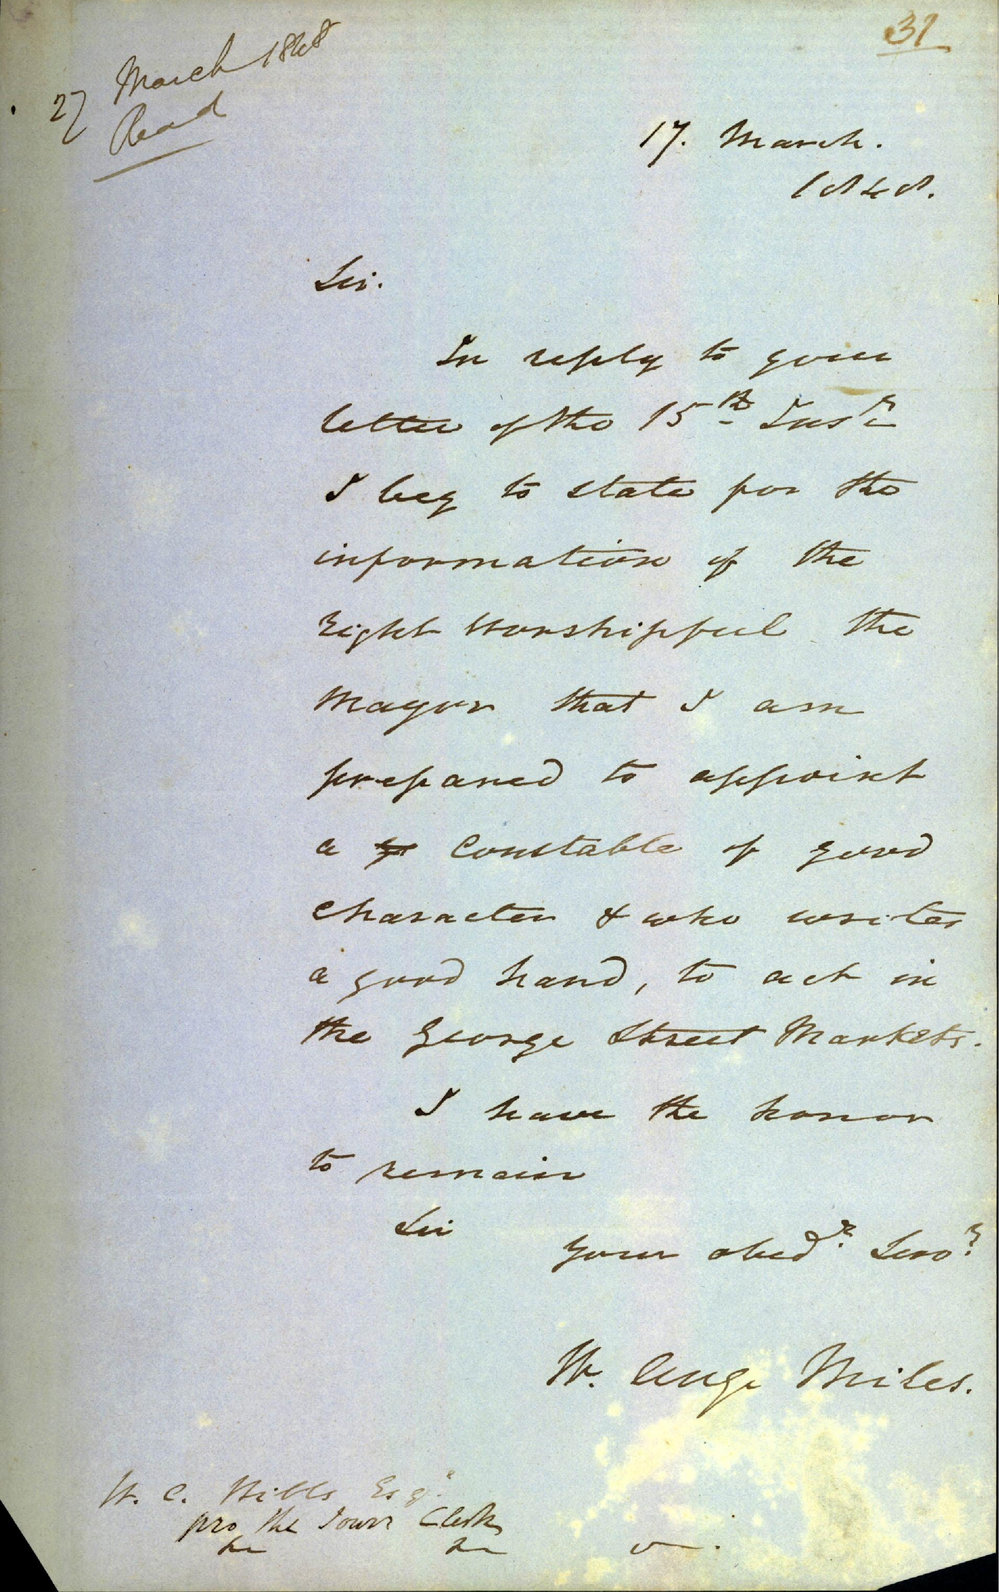 31
27 March 1848
Read
17. March.
1848.
Sir.
In reply to your
letter of the 15th Inst
I beg to state for the
information of the
Right Worshipful the
Mayor that I am
prepared to appoint
a Constable of good
character & who writes
a good hand, to act in
the George Street Markets.
I have the honor
to remain
Sir
Your obedt Servt
W. Augs Miles.
W. C. Wills Esqr
pro the Town Clerk